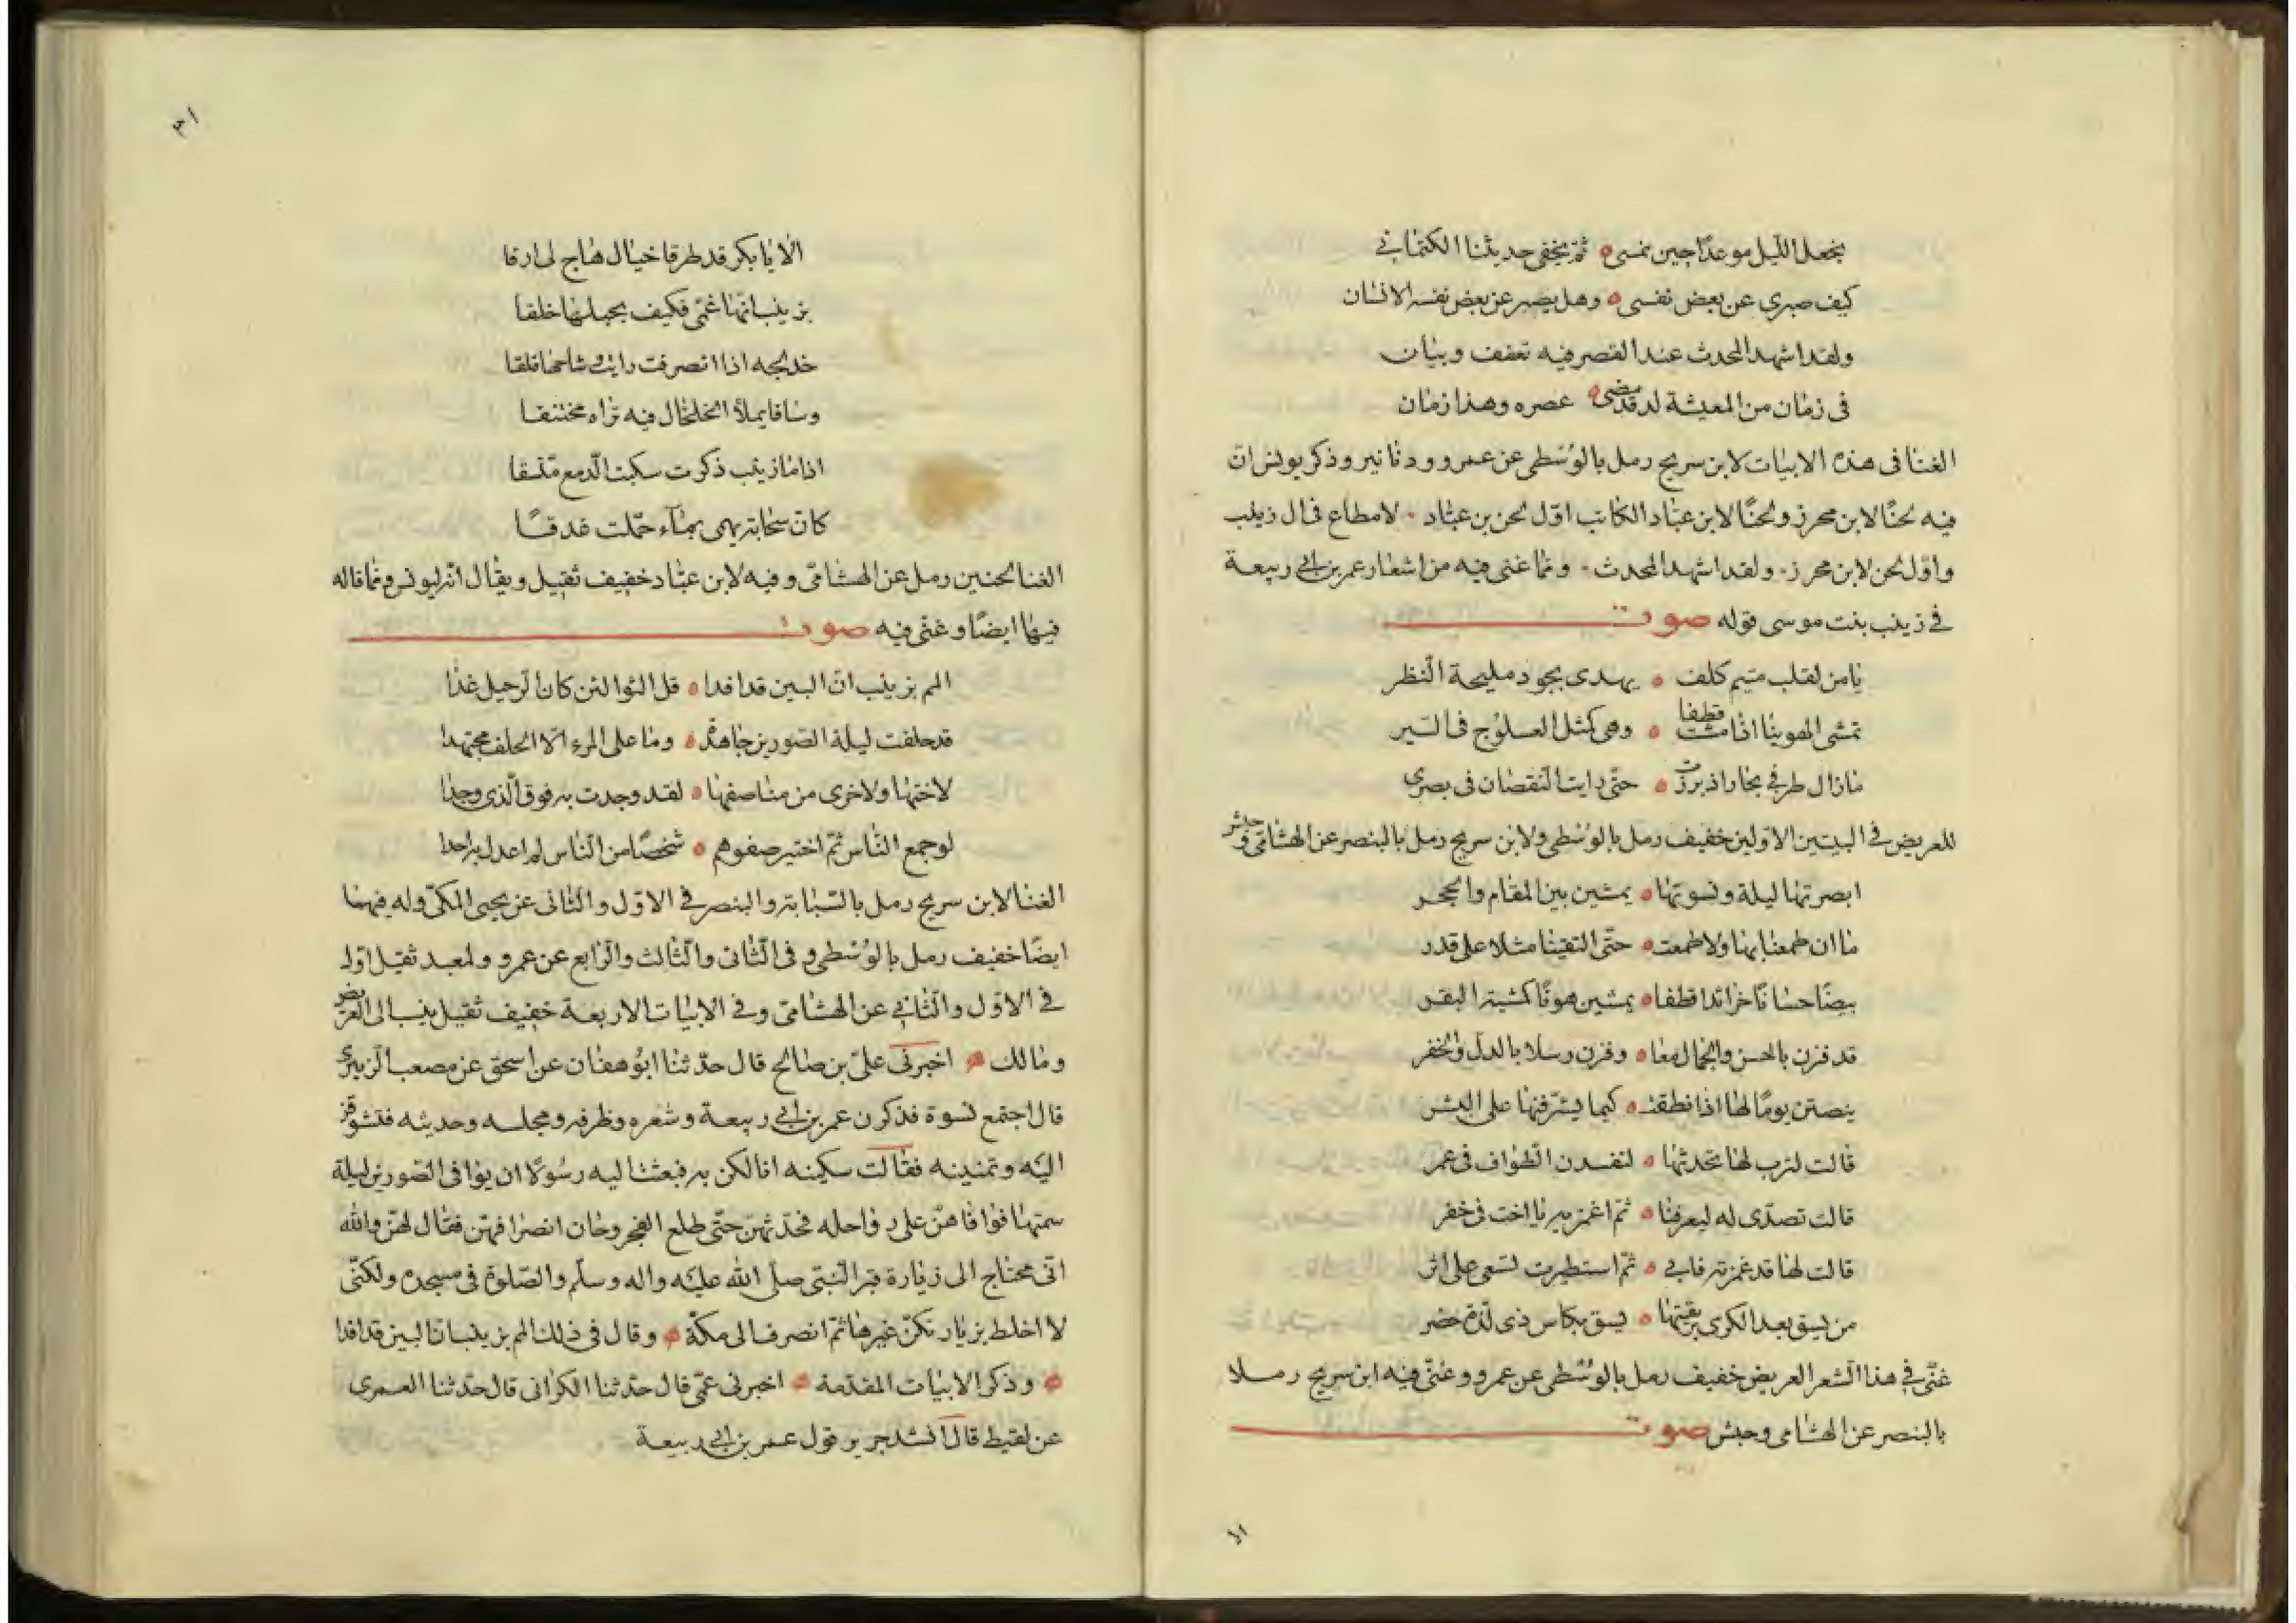 يجعل الليل موعدا حين نمسى ثم يخفى حديثنا الكتمانى
كيف صبرى عن بعض نفسى وهل يصبر عن بعض نفسه الانسان
ولقد اشهد المحدث عند القصر فيه تعفف وبيان
فى زمان من المعيشة لد قد مضى عصره وهذا زمان
الغنا فى هذه الابيات لابن سريج رمل بالوسطى عن عمرو ودنانير وذكر يونس ان
فيه لحنا لابن محرز ولحنا لابن عباد الكاتب اول لحن بن عباد لامطاع فى ال زينب
واول لحن لابن محرز ولقد اشهد المحدث ومما غنى فيه من اشعار عمر بن ابى ربيعة
فى زينب بنت موسى قوله صوت
يا من لقلب متيم كلف يهدى بجود مليحة النظر
تمشى الهوينا اذا مشت قطفا وهى كمثل العسلوج فى السير
ما زال طرفى يحار اذ برزت حتى رايت النقصان فى بصرى
للعريض فى البيتين الاولين خفيف رمل بالوسطى ولابن سريج رمل بالبنصر عن الهشامى وحبش
ابصرتها ليلة ونسوتها يمشين بين المقام والحجر
ما ان طمعنا بها ولا طمعت حتى التقينا مثلا على قدر
بيضا حسانا خرائدا قطفا يمشين هونا كمشية البقر
قد فزن بالحسن والجمال معا وفزن رسلا بالدل والخفر
ينصتن يوما لها اذا نطقت كيما يشرفنها على البشر
قالت لترب لها تحدثها لنفسدن الطواف فى عمر
قالت تصدى له ليعرفنا ثم اغمزيه يا اخت فى خفر
قالت لها قد غمزته فابى ثم استطيرت تسعى على اثر
من يسق بعد الكرى بريقتها يسق بكاس ذى لذة خضر
غنى فى هذا الشعر العريض خفيف رمل بالوسطى عن عمرو وغنى فيه ابن سريج رملا
بالبنصر عن الهشامى وحبش صوت
٣١
الا يا بكر قد طرقا خيال هاج لى ارقا
بزينب انها غمى فكيف بحبلها خلقا
خدلجه اذا انصرفت رايت وشاحها قلقا
وساقا يملا الخلخال فيه تراه مختنقا
اذا ما زينب ذكرت سكبت الدمع متسقا
كان سحابة يهمى بماء حملت غدقا
الغنا لحنين رمل عن الهشامى وفيه لابن عباد خفيف ثقيل ويقال انه ليونس ومما قاله
فيها ايضا وغنى فيه صوت
الم بزينب ان البين قد افدا قل الثوا لئن كان الرحيل غدا
قد حلفت ليلة الصورين جاهدة وما على المرء الا الحلف مجتهدا
لاختها ولاخرى من مناصفها لقد وجدت به فوق الذى وجدا
لو جمع الناس ثم اختير صفوهم شخصا من الناس لم اعدل به احدا
الغنا لابن سريج رمل بالسبابة والبنصر فى الاول والثانى عن يحيى المكى وله فيهما
ايضا خفيف رمل بالوسطى وفى الثانى والثالث والرابع عن عمرو ولمعبد ثقيل اول
فى الاول والثانى عن الهشامى وفى الابيات الاربعة خفيف ثقيل ينسب الى العريض
ومالك اخبرنى على بن صالح قال حدثنا ابو هفان عن اسحق عن مصعب الزبيرى
قال اجتمع نسوة فذكرن عمر بن ابى ربيعة وشعره وظرفه ومجلسه وحديثه فتشوقن
اليه وتمنينه فقالت سكينه انا لكن به فبعثت اليه رسولا ان يوافى الصورين ليلة
سمتها فوافاهن على رواحله فحدثهن حتى طلع الفجر وحان انصرافهن فقال لهن والله
انى محتاج الى زيارة قبر النبى صلى الله عليه واله وسلم والصلوة فى مسجده ولكنى
لا اخلط بزيارتكن غيرها ثم انصرف الى مكة وقال فى ذلك الم بزينب ان البين قد افدا
وذكر الابيات المقدمة اخبرنى عمى قال حدثنا الكرانى قال حدثنا العمرى
عن لقيط قال انشد جرير قول عمر بن ابى ربيعة